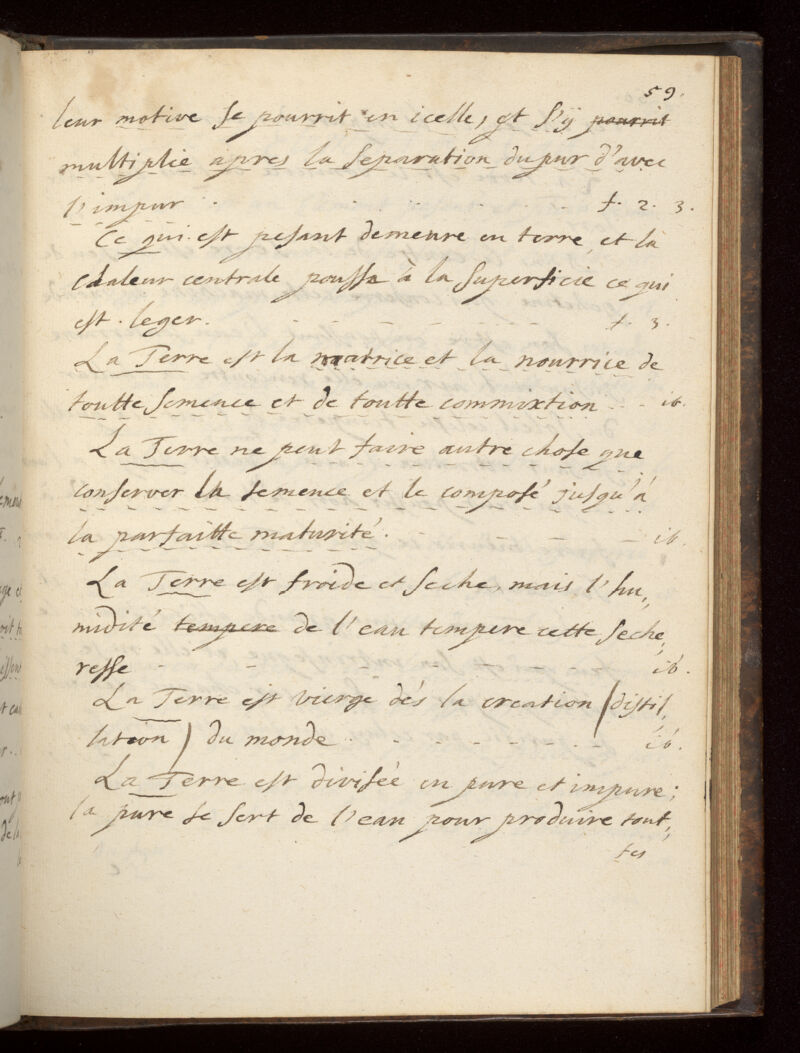 59.
leur motive se pourrit en icelle, et s'ÿ pourrit
multiplie apres la separation du pur d'avec
l'impur . . . . . . f. 2. 3.
Ce qui est pesant demeure en terre, et la
chaleur centrale pousse à la superficie ce qui
est leger. - - - - f. 3.
La Terre est la matrice et la nourrice de
toutte semence et de toutte commixtion - - ib.
La Terre ne peut faire autre chose que
conserver la semence et le composé jusqu'à
la parfaitte maturité. - - - ib.
La Terre est froide et seche, mais l'hu,,
midité tempere de l'eau tempere cette seche,,
resse - - - - ib.
La Terre est vierge dés la creation (distil,,
lation) du monde - - - - - ib.
La Terre est divisée en pure et impure;
la pure se sert de l'eau pour produire tout,,
tes